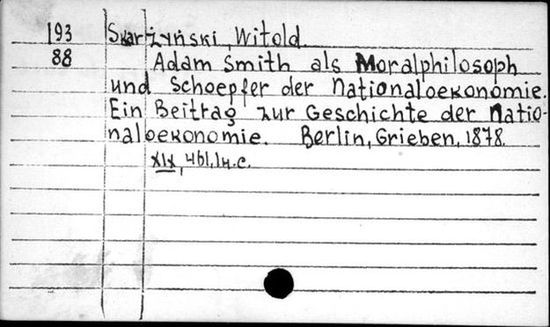 193 Skarżyński, Witold
88 Adam Smith als Moralphilosoph
und Schoepfer der Nationaloekonomie.
Ein Beitrag zur Geschichte der Natio-
naloekonomie. Berlin, Grieben, 1878.
XIX, 461, 1 k.c.